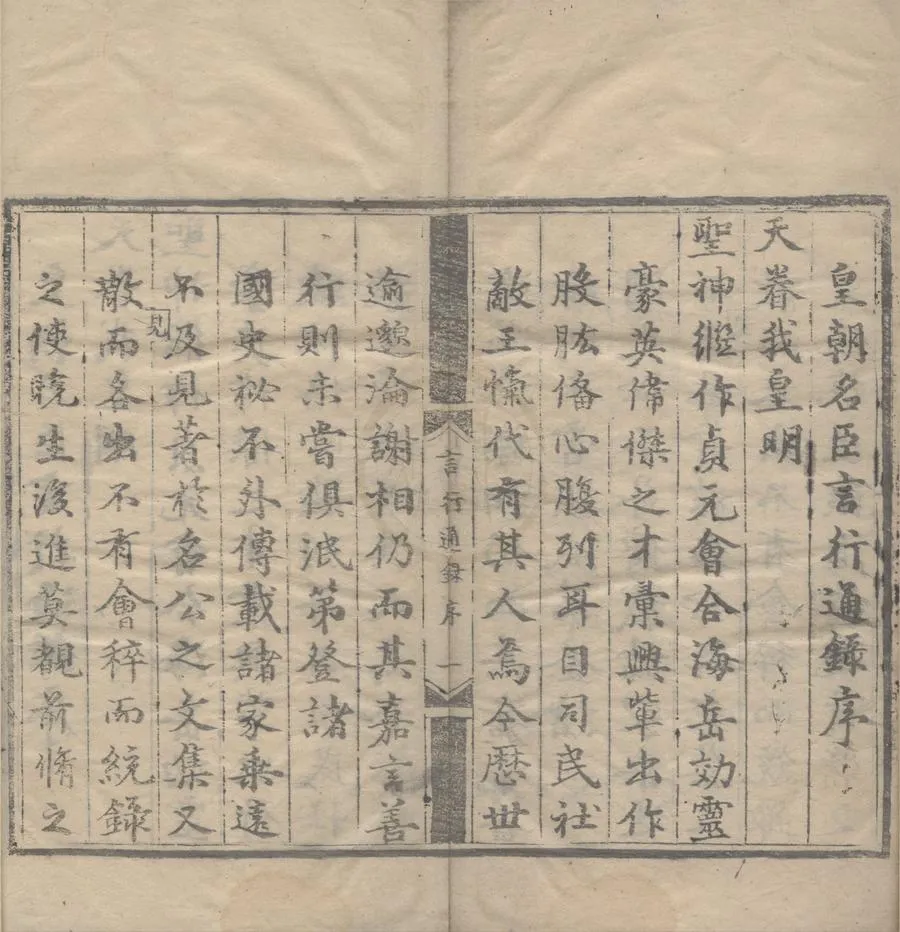 皇朝名臣言行通錄序
天眷我皇明
聖神繼作貞元會合海岳効靈
豪英偉傑之才彙興輩出作
股肱俻心腹列耳目司民社
敵王愾代有其人焉今歷世
言行通錄序 一
逾邈淪謝相仍而其嘉言善
行則未嘗俱泯第登諸
國史祕不外傳載諸家乗遠
不及見著於名公之文集又
散而各出不有會稡而統錄
見
之使晚生後進莫覩前脩之